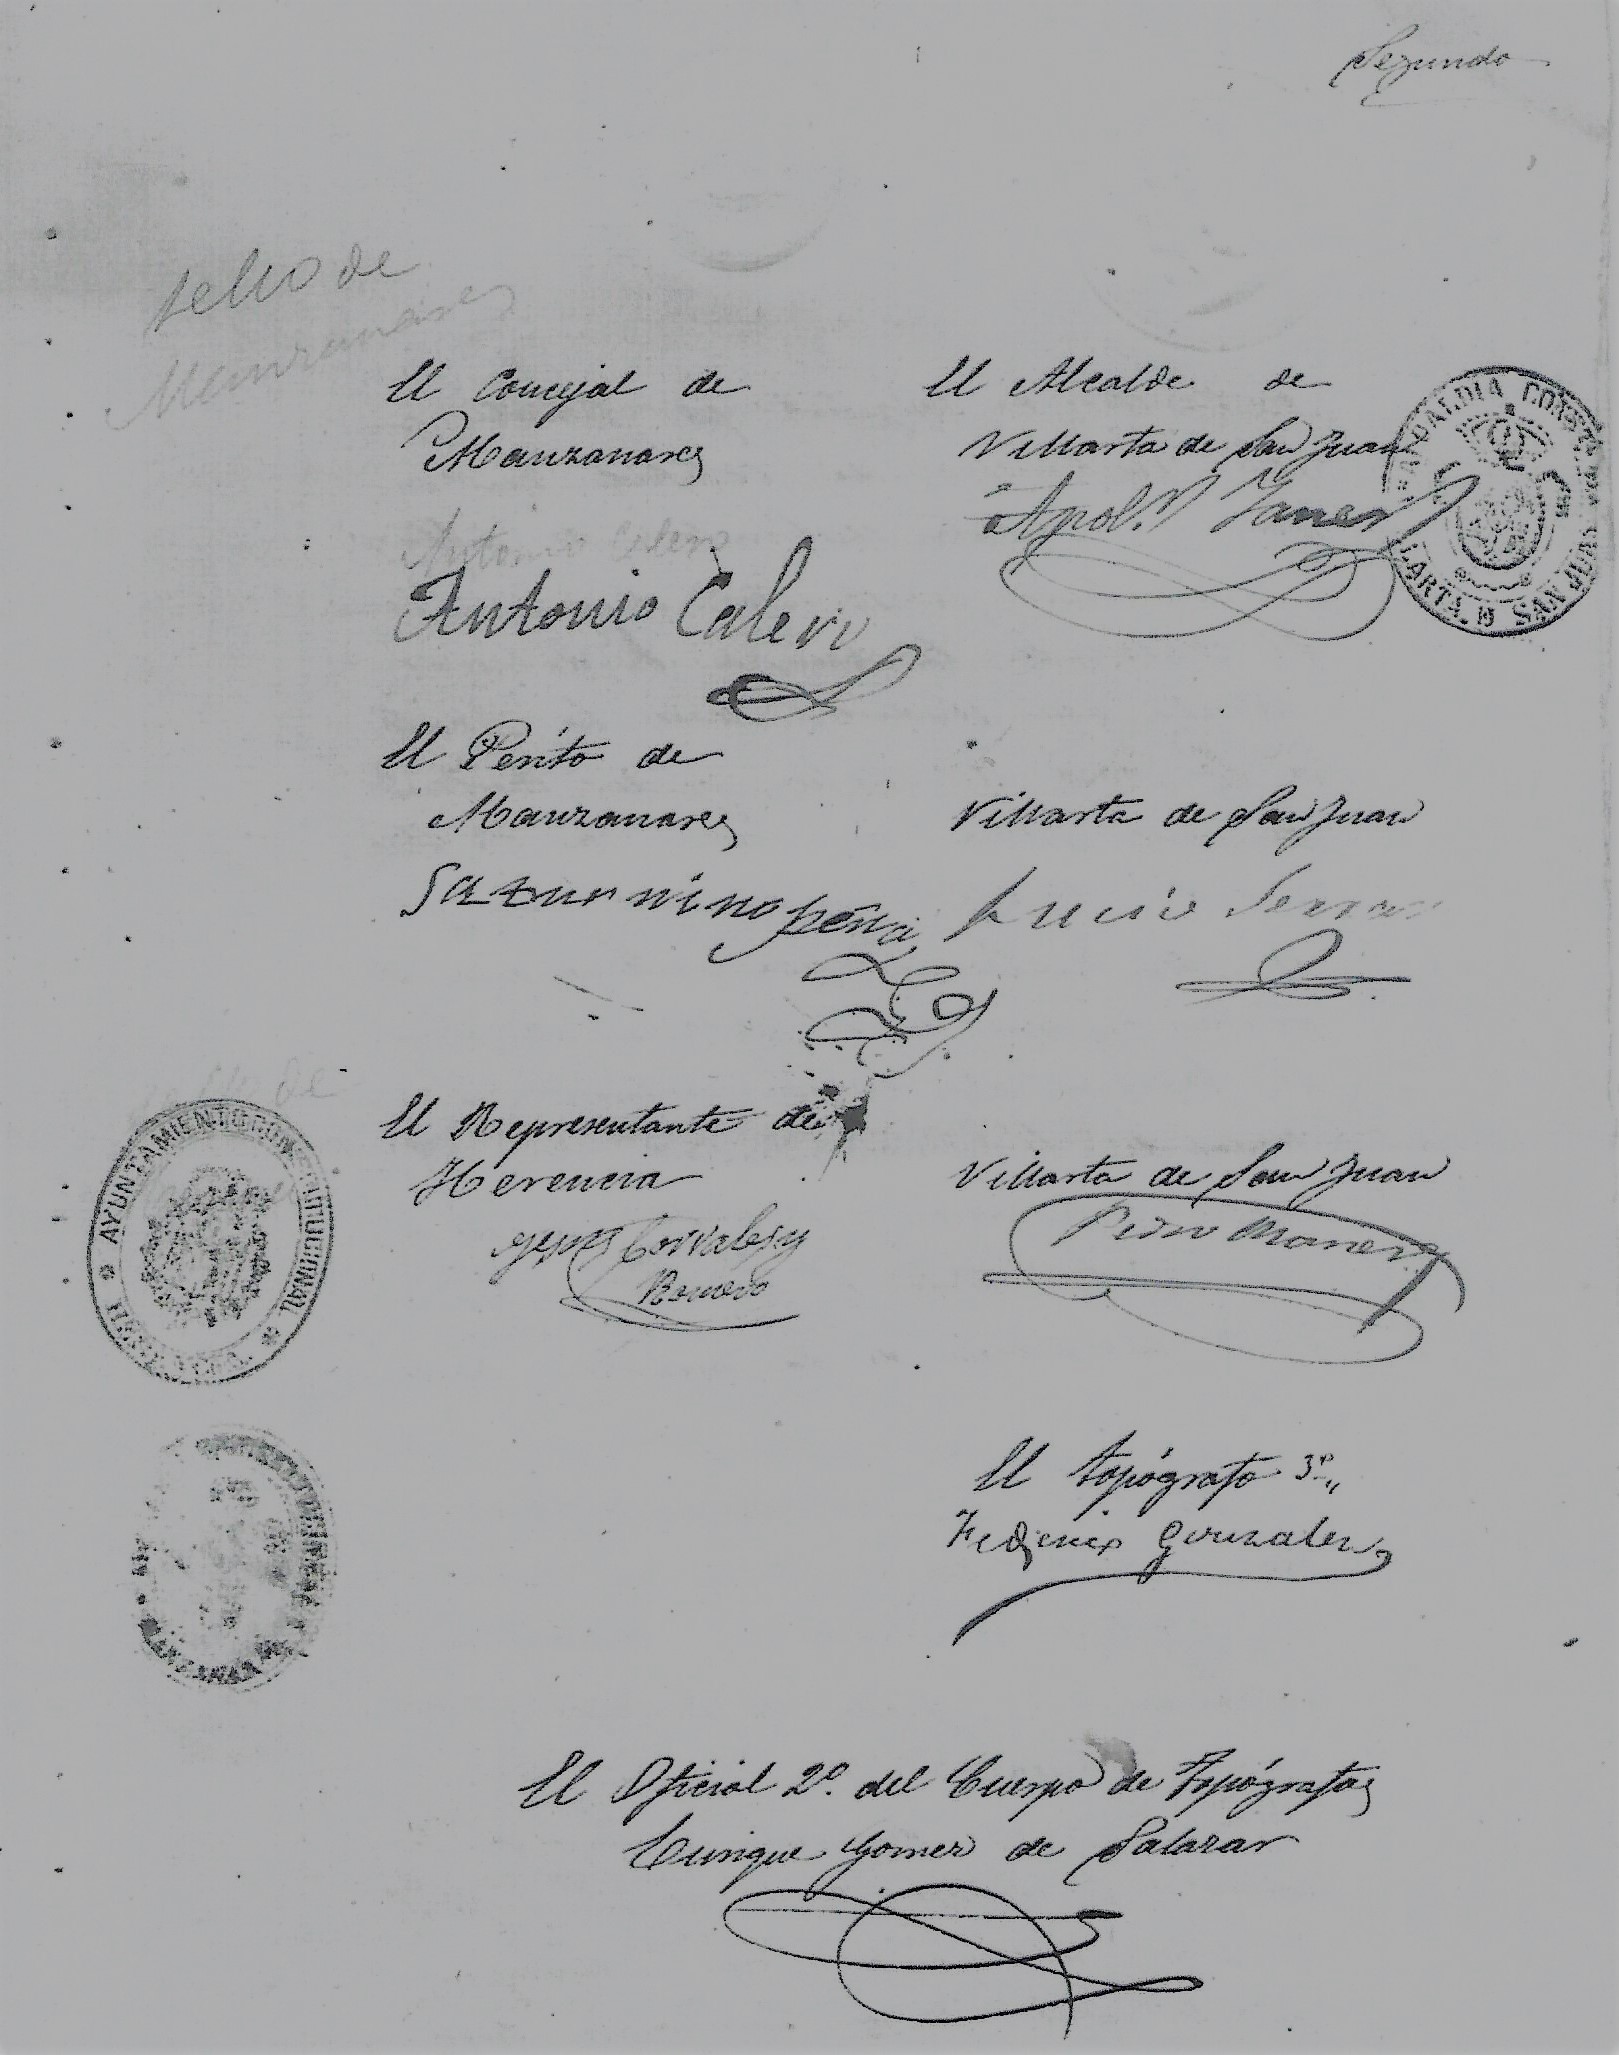 Segundo
sello de
Manzanares
El Concejal de
Manzanares
El Alcalde de
Villarta de San Juan
Antonio Calero
Apol.º Yanes
Antonio Calero
ALCALDIA CONST
LARTA. D SAN JUAN
El Perito de
Manzanares
Villarta de San Juan
Saturnino peña
Lucio Serra
sello de
El Representante de
Herencia
Villarta de San Juan
Corrales y
Pedro
AYUNTAMIENTO CONSTITUCIONAL
MANZANARES
El topógrafo 3º
Federico Gonzalez
El Oficial 2º. del Cuerpo de Topógrafos
Enrique Gomez de Salazar